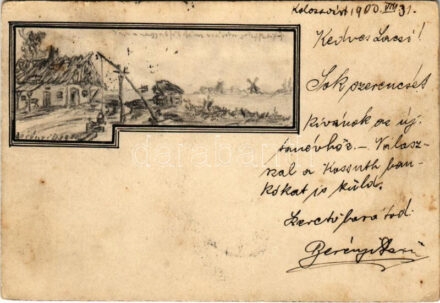 Kolozsvárt 1900. VIII 31.
Kedves Laczi!
Sok szerencsét
kívánok az új
tanévhöz. – Válasz-
szal a Kossuth ban-
kókat is küld.
Szerető barátod
Berényi
darabanth